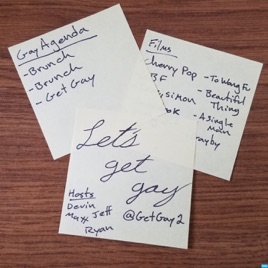 Gay Agenda
-Brunch
-Brunch
-Get Gay
Films
Cherry Pop
-To Wong Fu
-Beautiful
Thing
-A Single
Man
Let's
get
gay
Hosts
Devin
Maxx Jeff
Ryan
@GetGay2